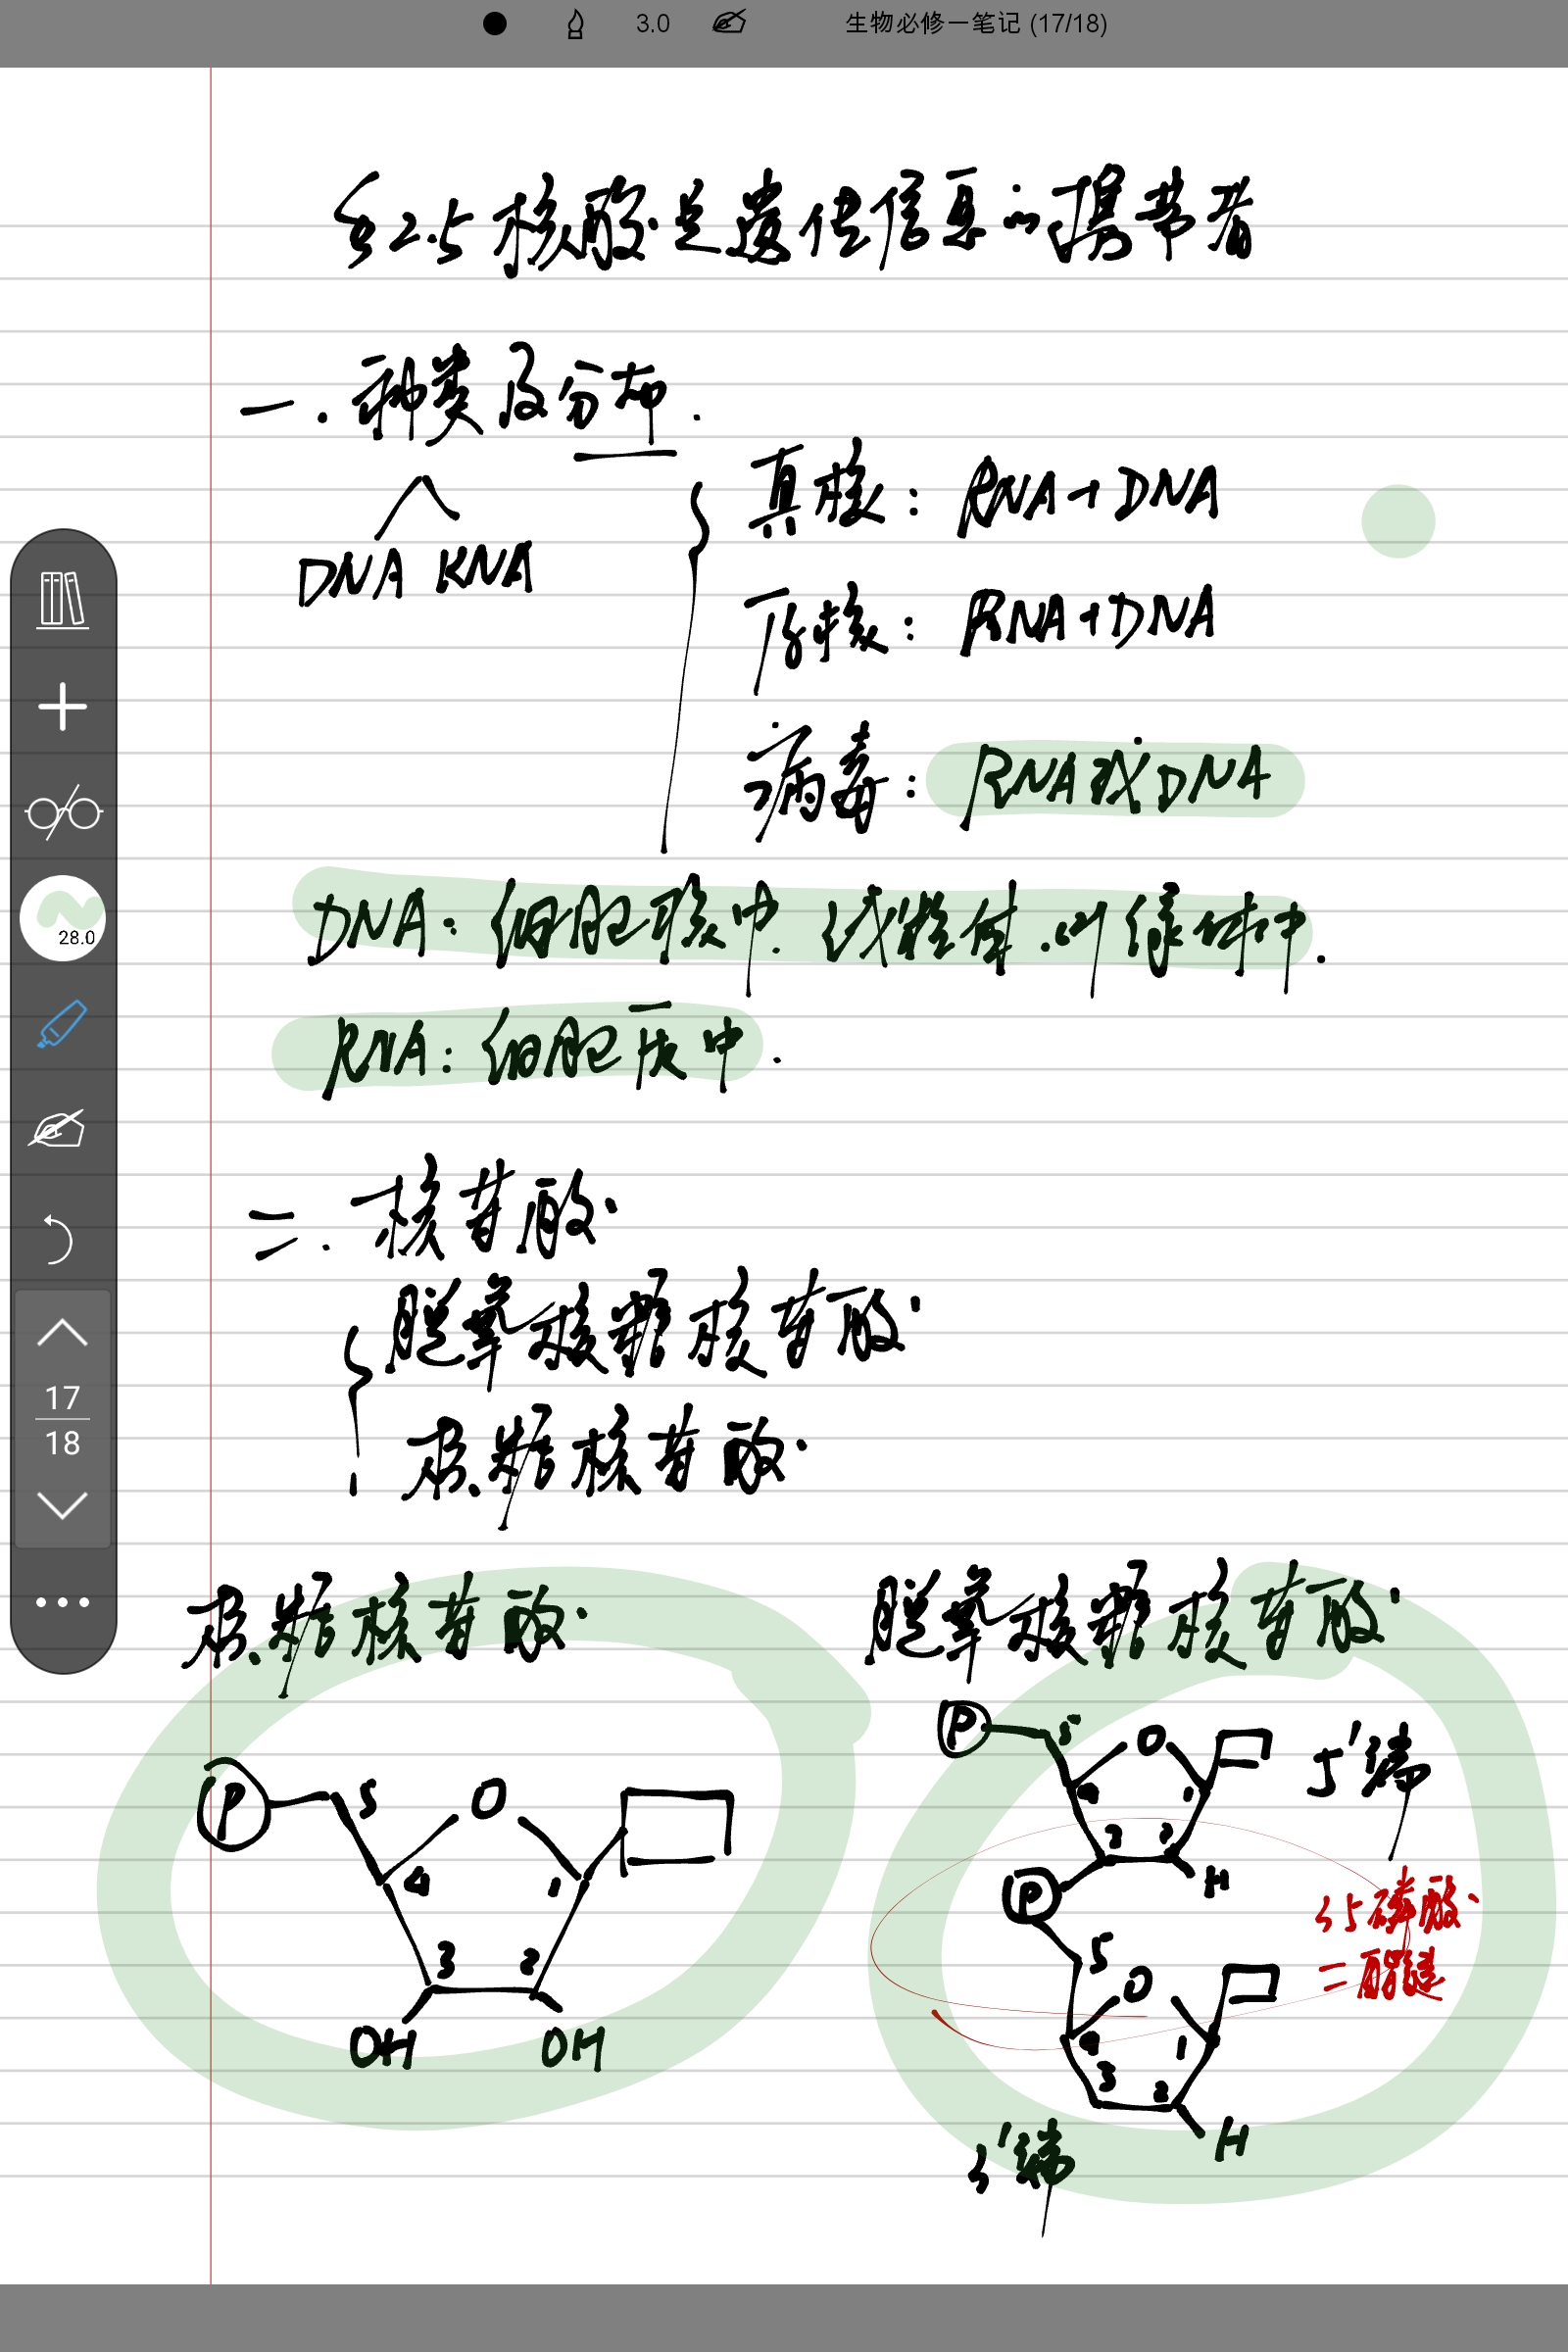 3.0 生物必修一笔记 (17/18)
§2.5 核酸是遗传信息的携带者
一.种类及分布.
DNA RNA
真核: RNA+DNA
原核: RNA+DNA
病毒: RNA或DNA
DNA: 细胞核中. 线粒体.叶绿体中.
RNA: 细胞质中.
28.0
二.核苷酸
脱氧核糖核苷酸
核糖核苷酸
17
18
核糖核苷酸
P 5 O
4 1
3 2
OH OH
脱氧核糖核苷酸
P 5 O
4 1
3 2
H
5'端
P
5 O
4 1
3 2
H
3'端
35磷酸
二酯键